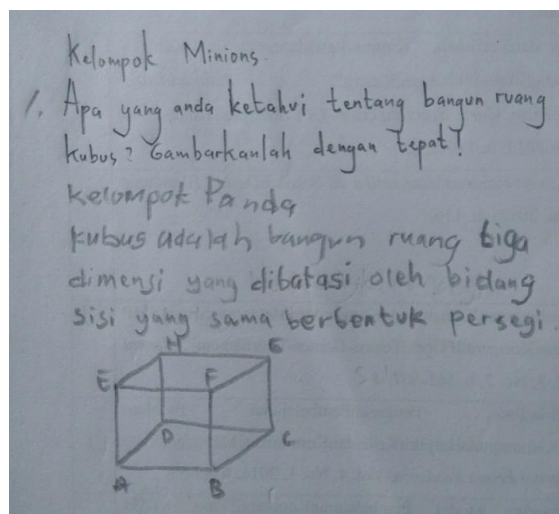 Kelompok Minions.
1. Apa yang anda ketahui tentang bangun ruang
kubus? Gambarkanlah dengan tepat!
Kelompok Panda
kubus adalah bangun ruang tiga
dimensi yang dibatasi oleh bidang
sisi yang sama berbentuk persegi
H G
E F
D C
A B